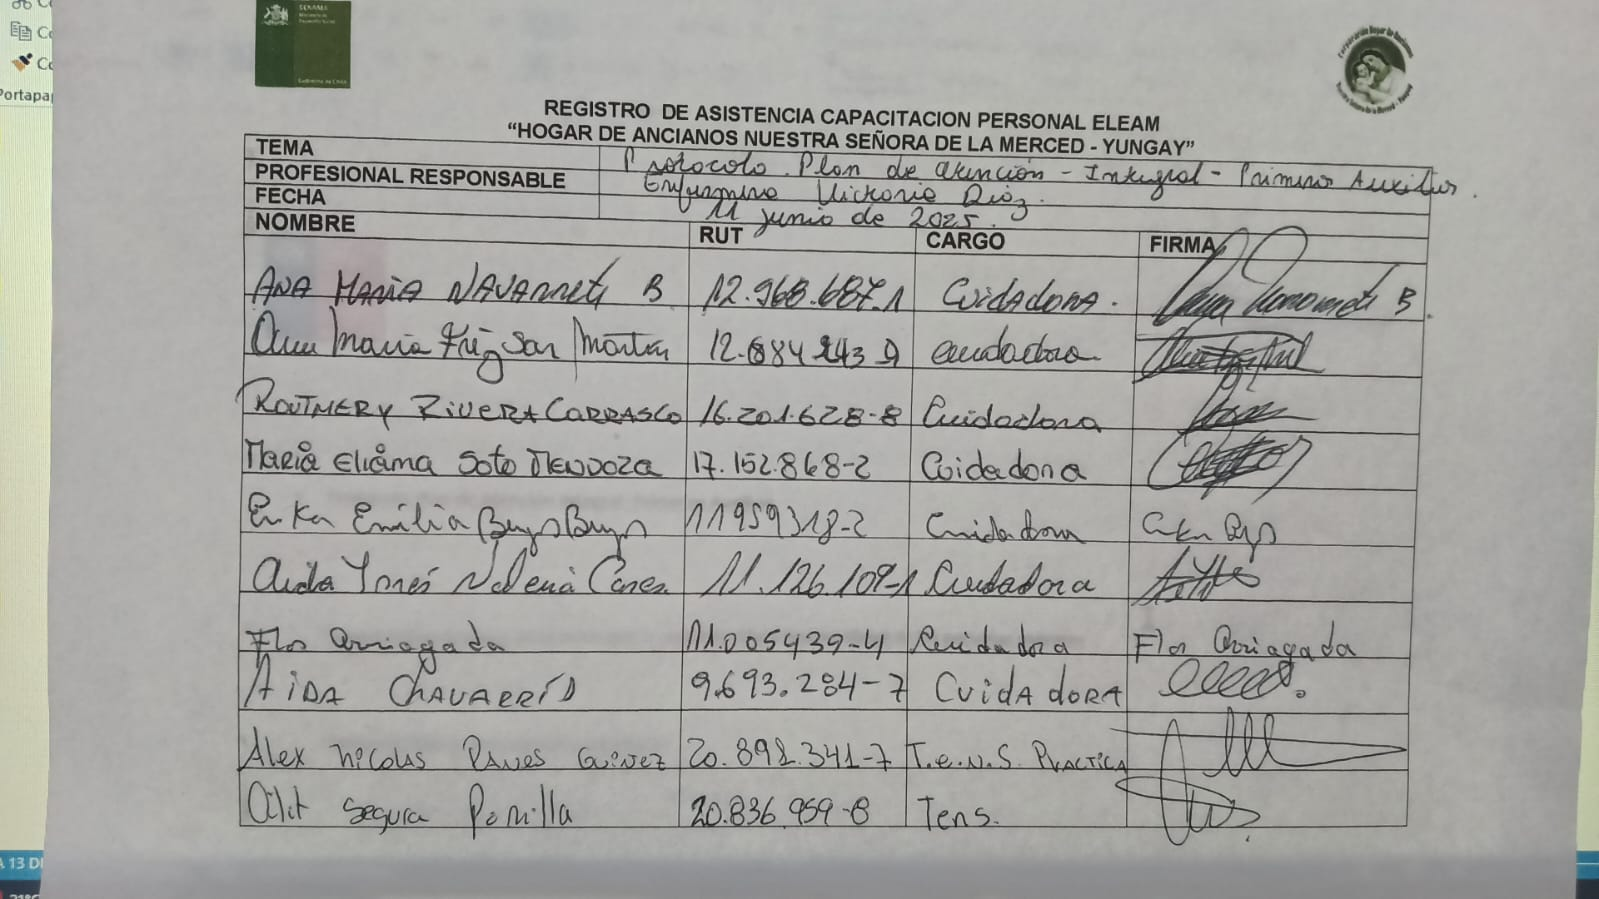 Co
Co
Portapa
SENAMA
Ministerio de
Desarrollo Social
Gobierno de Chile
REGISTRO DE ASISTENCIA CAPACITACION PERSONAL ELEAM
“HOGAR DE ANCIANOS NUESTRA SEÑORA DE LA MERCED - YUNGAY”
TEMA Protocolo Plan de atención - Integral - Primeros Auxilios.
PROFESIONAL RESPONSABLE Enfermera Vickoria Diaz.
FECHA 11 junio de 2025.
NOMBRE RUT CARGO FIRMA
ANA MARIA NAVARRETE B 12.968.687.1 Cuidadora. B
Ana Maria San Martin 12.684 243 9 cuidadora
ROUTMERY RIVERA CARRASCO 16.201.628-8 Cuidadora
Maria Eliana Soto Mendoza 17.152.868-2 Cuidadora
Erika Emilia 11959318-2 Cuidadora Erika
Aida Ynés 11.126.109-1 Cuidadora
Flor Arriagada 11.005439-4 Cuidadora Flor Arriagada
AIDA CHAVARRÍA 9.693.284-7 CuidAdORA
Alex Nicolas Panes 20.892.341-7 T.e.N.S. PRACTICA
Segura Ponilla 20.836.959-8 Tens.
A 13 DE